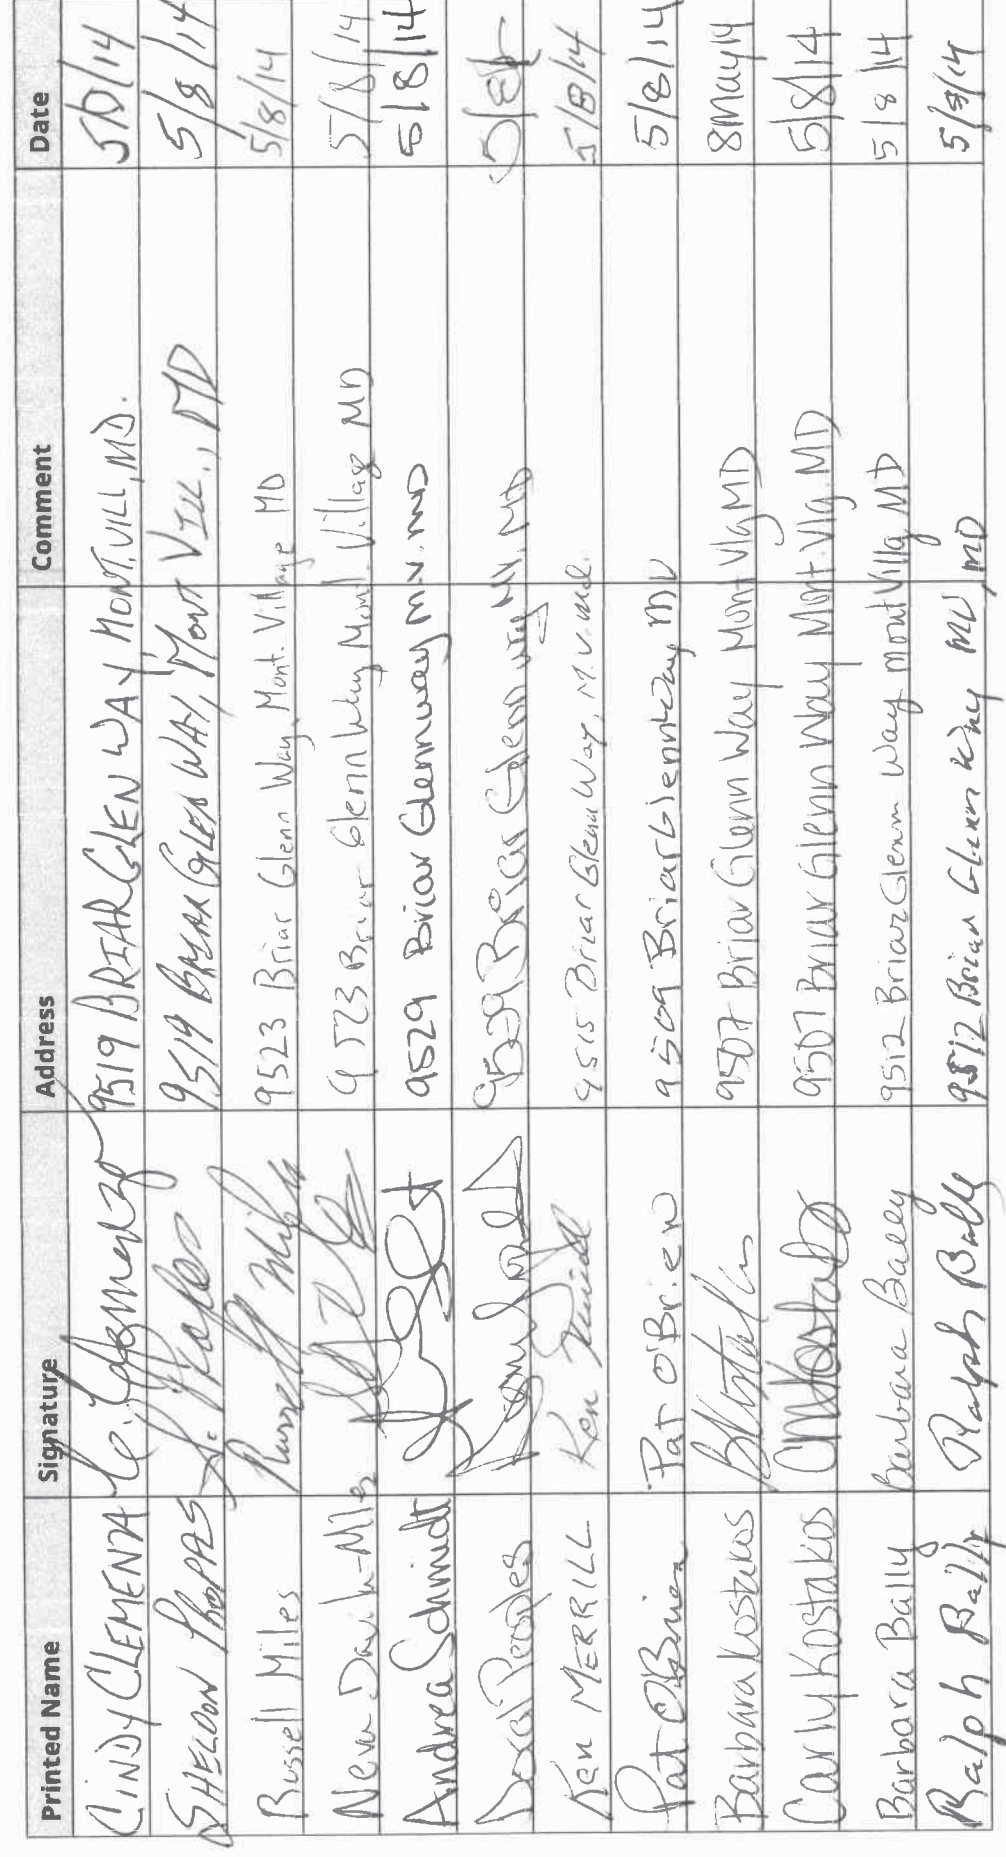 Printed Name Signature Address Comment Date
CINDY CLEMENTA 9519 BRIAR GLEN WAY, MONT. VILL, MD. 5/8/14
SHELDON 9519 BRIAR GLEN WAY, MONT VILL., MD 5/8/14
Russell Miles Russell Miles 9523 Briar Glenn Way, Mont. Village MD 5/8/14
Neva -Miles 9523 Briar Glenn Way Mont. Village MD 5/8/14
Andrea Schmidt 9529 Briar Glennway M.V. MD 5/8/14
9529 Briar Glenn way MD 5/8/14
Ken MERRILL Ken 9515 Briar Glenn Way, M.V. Md. 5/8/14
Pat O'Brien Pat O'Brien 9509 Briar Glenn Way, MV 5/8/14
Barbara Kostakos 9507 Briar Glenn Way Mont Vlg MD 8 May 14
Carly Kostakos 9507 Briar Glenn Way Mont. Vlg. MD 5/8/14
Barbara Bally Barbara Bally 9512 Briar Glenn Way Mont Villg MD 5/8/14
Ralph Bally Ralph Bally 9512 Briar Glenn Way MV, MD 5/8/14